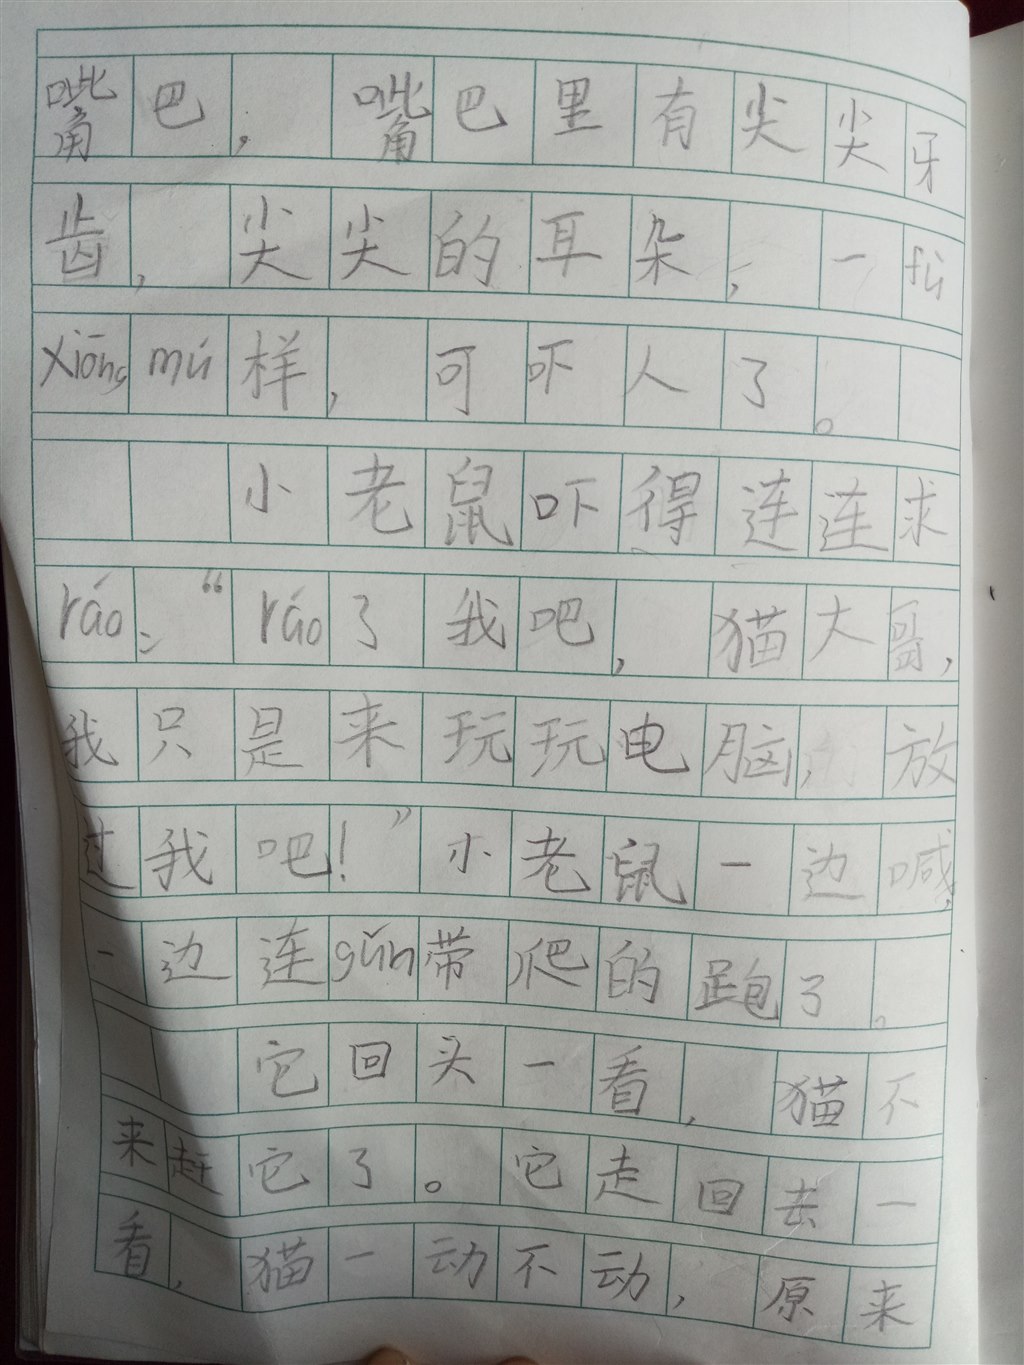 嘴巴，嘴巴里有尖尖牙
齿，尖尖的耳朵，一fù
xiōng mú样，可吓人了。
小老鼠吓得连连求
ráo：“ráo了我吧，猫大哥，
我只是来玩玩电脑，放
过我吧！”小老鼠一边喊，
一边连gǔn带爬的跑了。
它回头一看，猫不
来赶它了。它走回去一
看，猫一动不动，原来